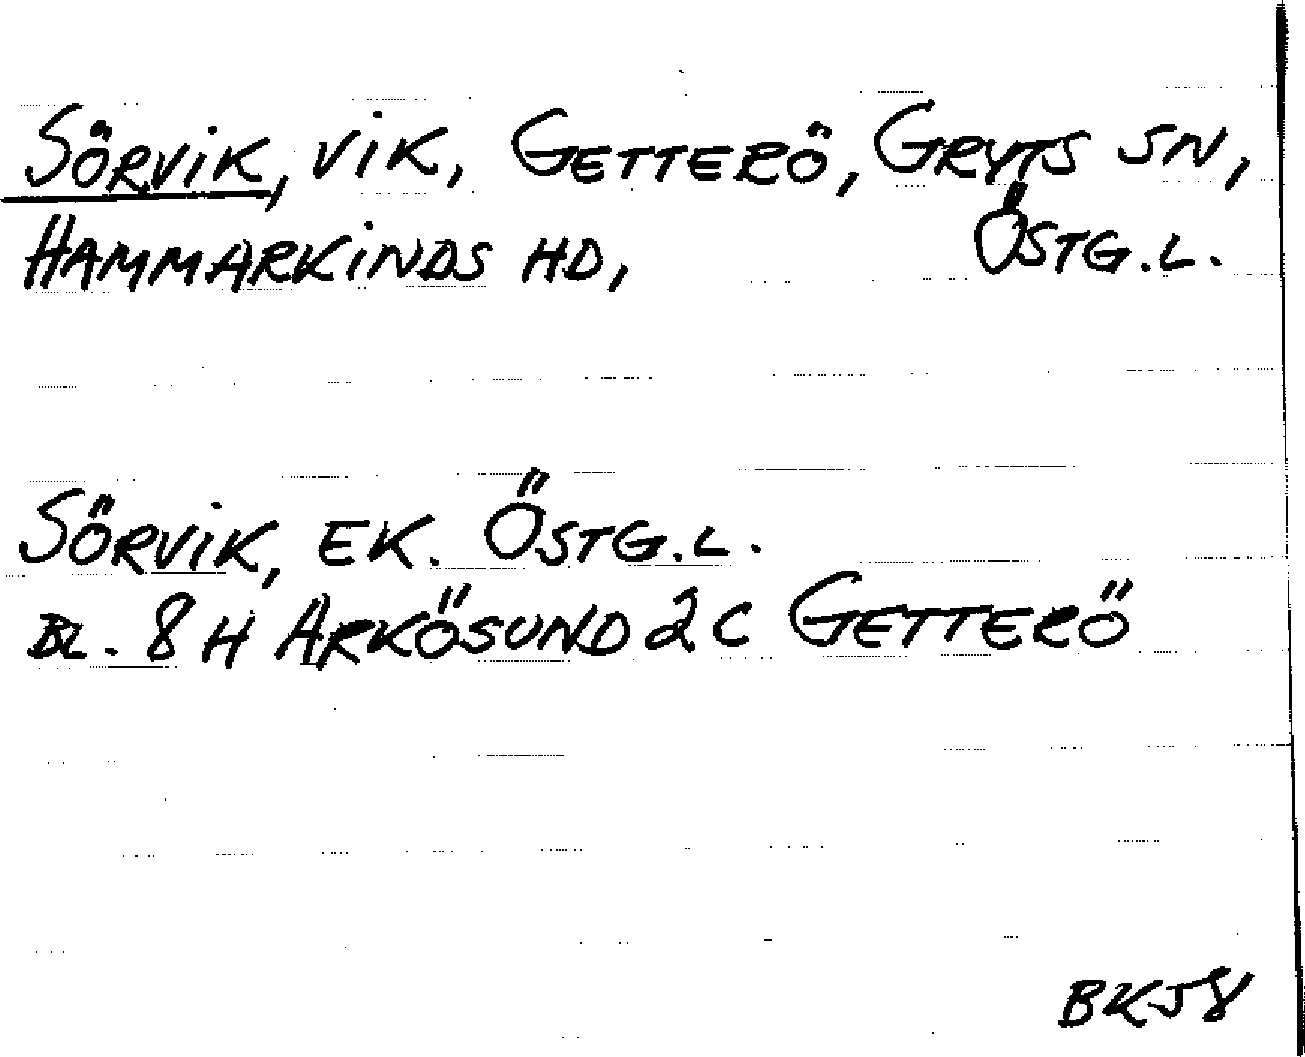 Sörvik, vik, Getterö, Gryts sn,
Hammarkinds hd, Östg.l.
Sörvik, ek. Östg.l.
Bl. 8 H Arkösund 2 c Getterö